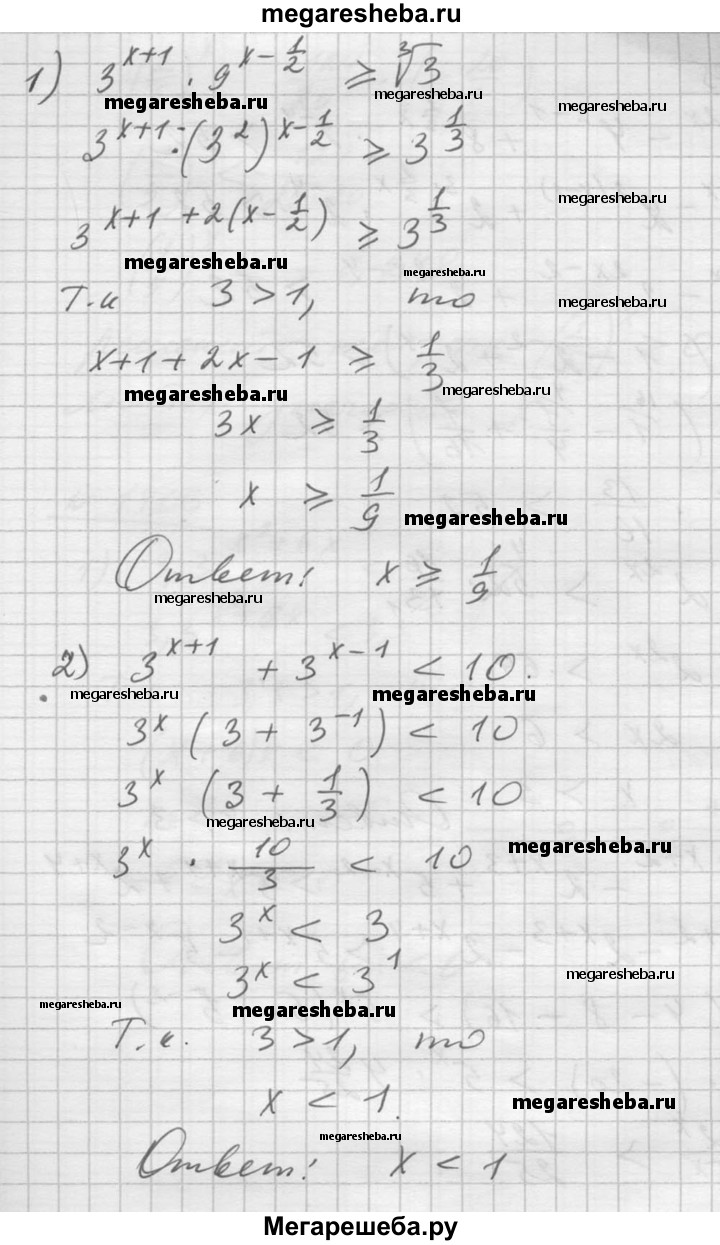 megaresheba.ru
1) 3^{x+1} · 9^{x-\frac{1}{2}} ⩾ \sqrt[3]{3}
megaresheba.ru megaresheba.ru megaresheba.ru
3^{x+1} · (3^2)^{x-\frac{1}{2}} ⩾ 3^{\frac{1}{3}}
megaresheba.ru
3^{x+1+2(x-\frac{1}{2})} ⩾ 3^{\frac{1}{3}}
megaresheba.ru megaresheba.ru
Т.к 3 > 1, то megaresheba.ru
x+1+2x-1 ⩾ \frac{1}{3}
megaresheba.ru megaresheba.ru
3x ⩾ \frac{1}{3}
x ⩾ \frac{1}{9}
megaresheba.ru
Ответ: x ⩾ \frac{1}{9}
megaresheba.ru
2) 3^{x+1} + 3^{x-1} < 10.
megaresheba.ru megaresheba.ru
3^x (3 + 3^{-1}) < 10
3^x (3 + \frac{1}{3}) < 10
megaresheba.ru megaresheba.ru
3^x · \frac{10}{3} < 10
3^x < 3
3^x < 3^1 megaresheba.ru
megaresheba.ru megaresheba.ru
Т.к. 3 > 1, то
x < 1. megaresheba.ru
megaresheba.ru
Ответ: x < 1
Мегарешеба.ру